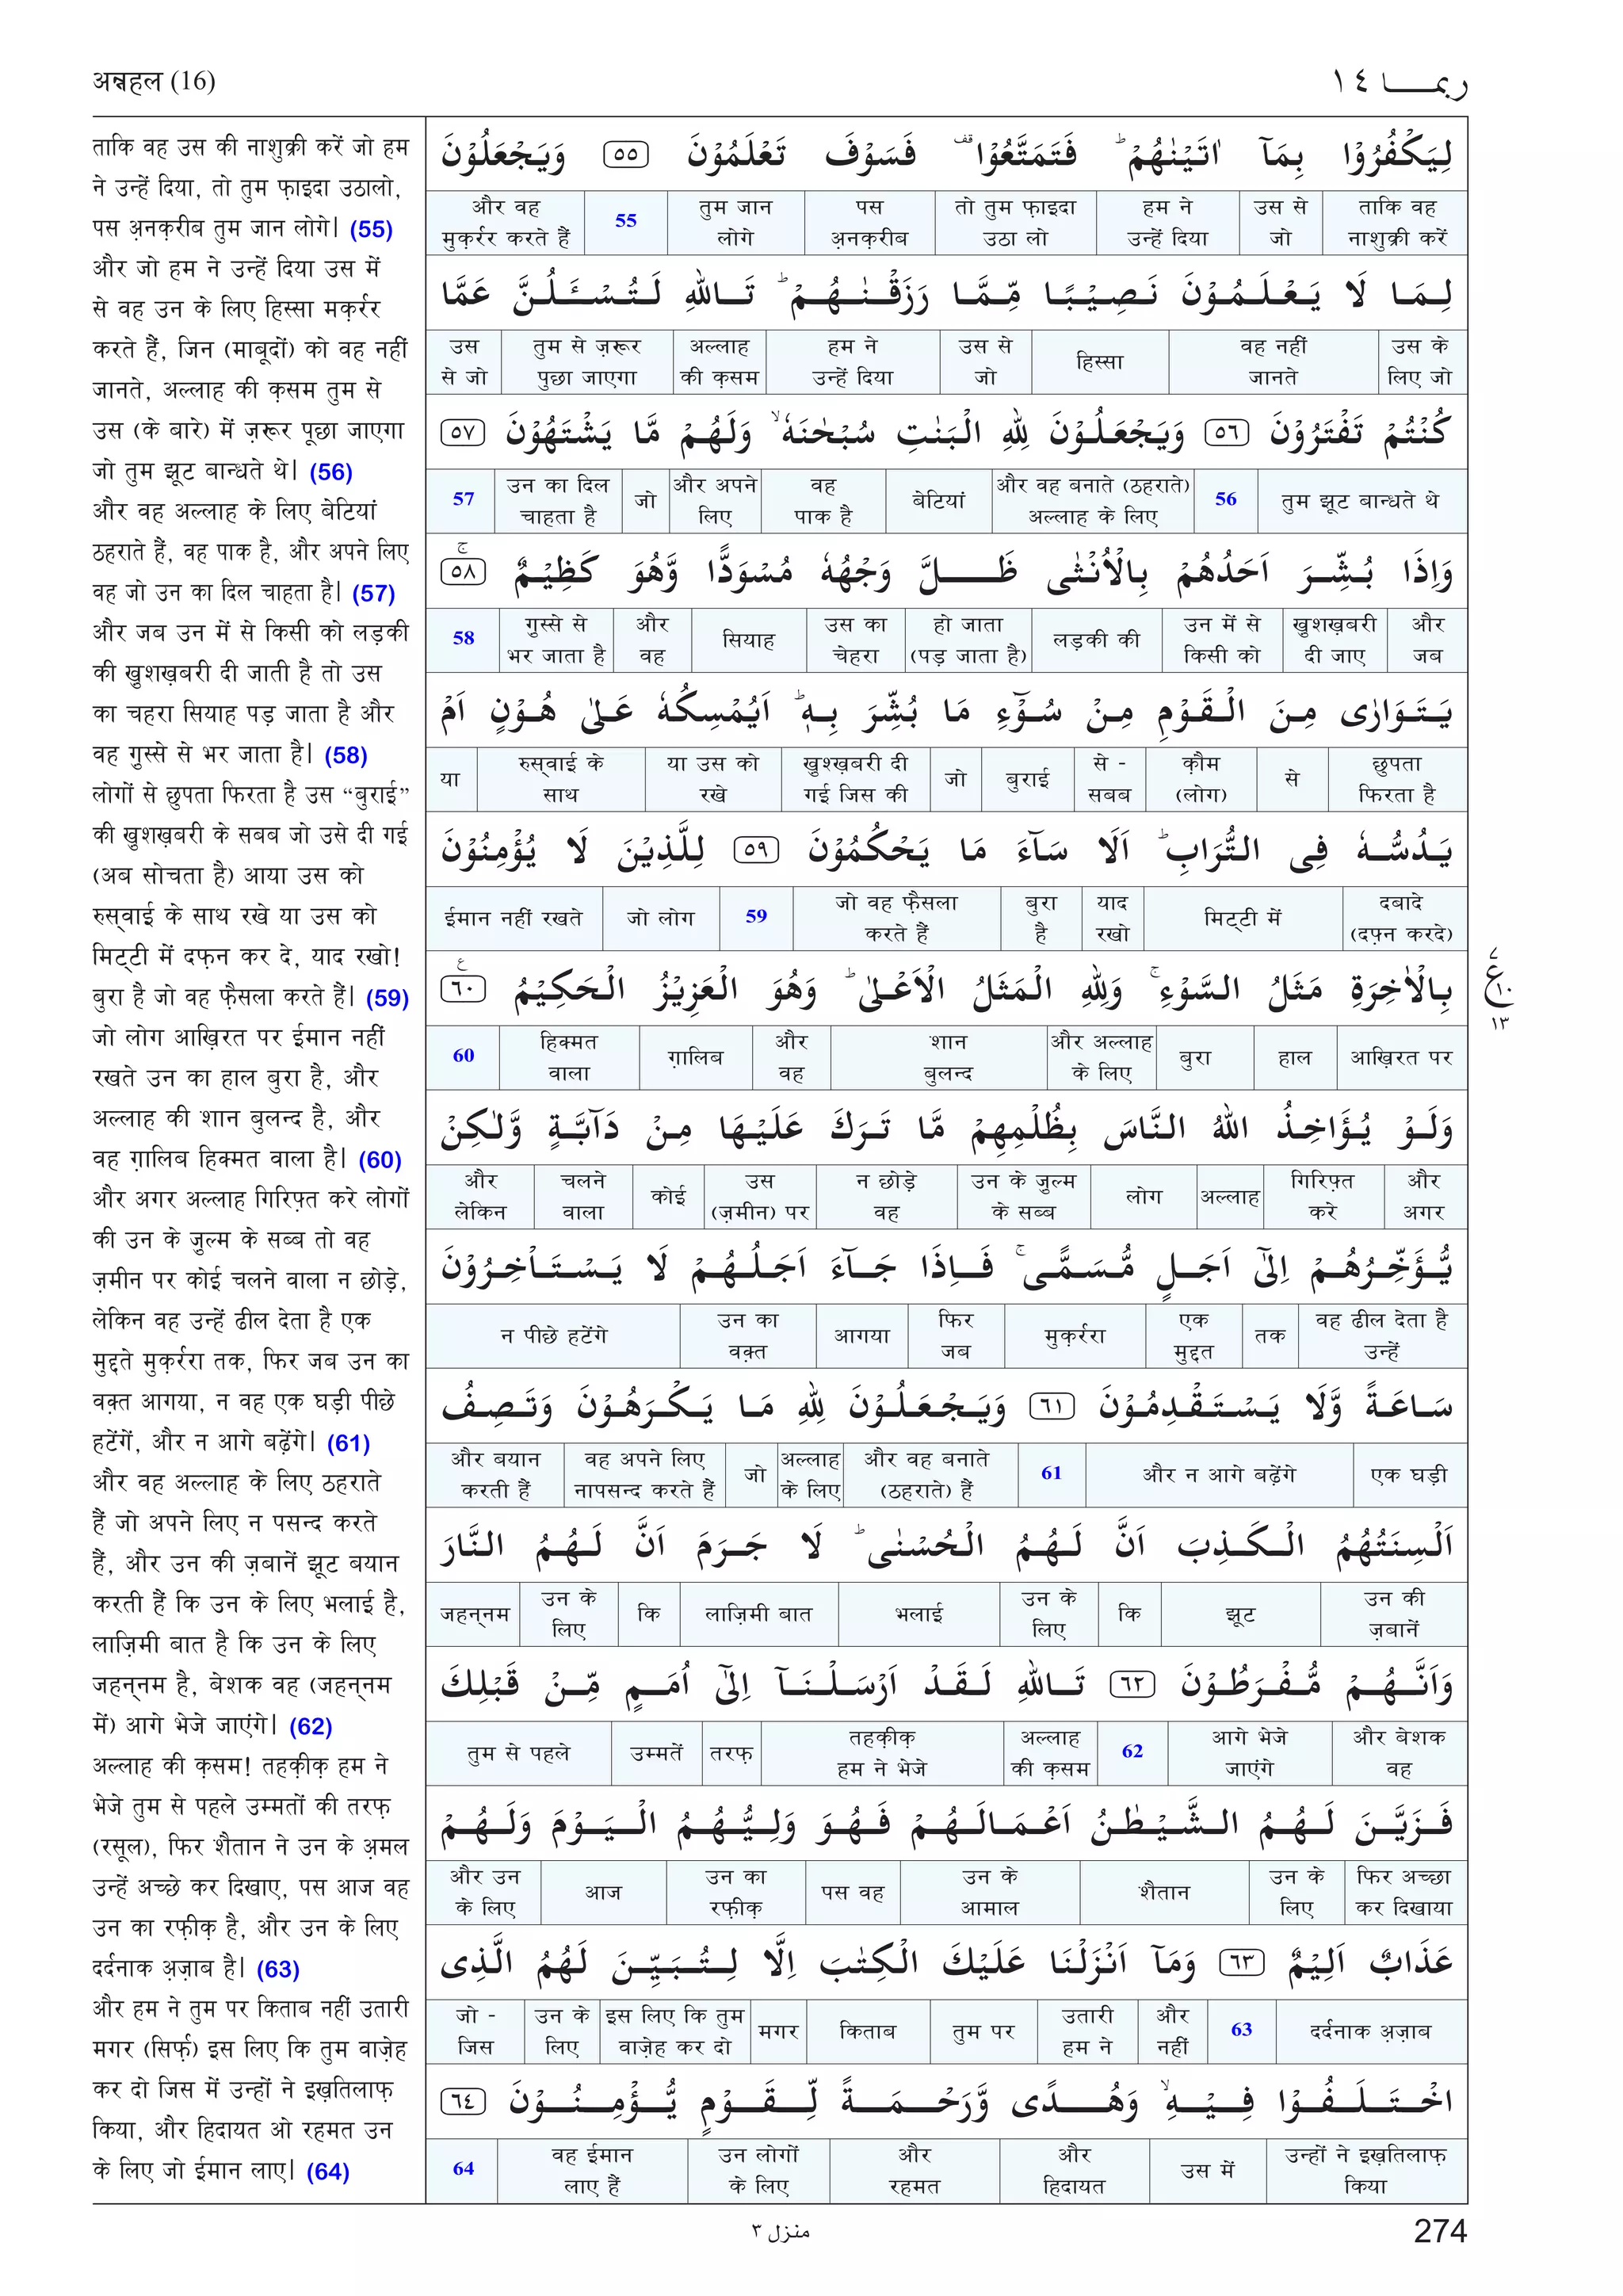 अन्नहल (16)
ربمـــا ١٤
ताकि वह उस की नाशुक्री करें जो हम
ने उन्हें दिया, तो तुम फ़ाइदा उठालो,
पस अ़नक़रीब तुम जान लोगे| (55)
और जो हम ने उन्हें दिया उस में
से वह उन के लिए हिस्सा मक़र्रर
करते हैं, जिन (माबूदों) को वह नहीं
जानते, अल्लाह की क़सम तुम से
उस (के बारे) में ज़रूर पूछा जाएगा
जो तुम झूट बान्धते थे| (56)
और वह अल्लाह के लिए बेटियां
ठहराते हैं, वह पाक है, और अपने लिए
वह जो उन का दिल चाहता है| (57)
और जब उन में से किसी को लड़की
की ख़ुशख़बरी दी जाती है तो उस
का चहरा सियाह पड़ जाता है और
वह गुस्से से भर जाता है| (58)
लोगों से छुपता फिरता है उस “बुराई”
की ख़ुशख़बरी के सबब जो उसे दी गई
(अब सोचता है) आया उस को
रुस्वाई के साथ रखे या उस को
मिट्टी में दफ़न कर दे, याद रखो!
बुरा है जो वह फ़ैसला करते हैं| (59)
जो लोग आख़िरत पर ईमान नहीं
रखते उन का हाल बुरा है, और
अल्लाह की शान बुलन्द है, और
वह ग़ालिब हिक्मत वाला है| (60)
और अगर अल्लाह गिरिफ़्त करे लोगों
की उन के जुल्म के सब्ब तो वह
ज़मीन पर कोई चलने वाला न छोड़े,
लेकिन वह उन्हें ढील देता है एक
मुद्दते मुक़र्ररा तक, फिर जब उन का
वक़्त आगया, न वह एक घड़ी पीछे
हटेंगें, और न आगे बढ़ेंगे| (61)
और वह अल्लाह के लिए ठहराते
हैं जो अपने लिए न पसन्द करते
हैं, और उन की ज़बानें झूट बयान
करती हैं कि उन के लिए भलाई है,
लाज़िमी बात है कि उन के लिए
जहन्नम है, बेशक वह (जहन्नम
में) आगे भेजे जाएंगे| (62)
अल्लाह की क़सम! तहक़ीक़ हम ने
भेजे तुम से पहले उम्मतों की तरफ़
(रसूल), फिर शैतान ने उन के अ़मल
उन्हें अच्छे कर दिखाए, पस आज वह
उन का रफ़ीक़ है, और उन के लिए
दर्दनाक अ़ज़ाब है| (63)
और हम ने तुम पर किताब नहीं उतारी
मगर (सिर्फ़) इस लिए कि तुम वाज़ेह
कर दो जिस में उन्हों ने इख़तिलाफ़
किया, और हिदायत ओ रहमत उन
के लिए जो ईमान लाए| (64)
لِيَكْفُرُوْا بِمَآ اٰتَيْنٰهُمْ ؕ فَتَمَتَّعُوْا ۥ فَسَوْفَ تَعْلَمُوْنَ ٥٥ وَيَجْعَلُوْنَ
ताकि वह उस से हम ने तो तुम फ़ाइदा पस तुम जान 55 और वह
नाशुक्री करें जो उन्हें दिया उठा लो अ़नक़रीब लोगे मुक़र्रर करते हैं
لِمَا لَا يَعْلَمُوْنَ نَصِيْبًا مِّمَّا رَزَقْنٰهُمْ ؕ تَاللّٰهِ لَتُسْـَٔلُنَّ عَمَّا
उस के वह नहीं हिस्सा उस से हम ने अल्लाह तुम से ज़रूर उस
लिए जो जानते जो उन्हें दिया की क़सम पुछा जाएगा से जो
كُنْتُمْ تَفْتَرُوْنَ ٥٦ وَيَجْعَلُوْنَ لِلّٰهِ الْبَنٰتِ سُبْحٰنَهٗ ۙ وَلَهُمْ مَّا يَشْتَهُوْنَ ٥٧
तुम झूट बान्धते थे 56 और वह बनाते (ठहराते) बेटियां वह और अपने जो उन का दिल 57
अल्लाह के लिए पाक है लिए चाहता है
وَاِذَا بُشِّرَ اَحَدُهُمْ بِالْاُنْثٰى ظَلَّ وَجْهُهٗ مُسْوَدًّا وَّهُوَ كَظِيْمٌ ۚ ٥٨
और ख़ुशख़बरी उन में से लड़की की हो जाता उस का सियाह और गुस्से से 58
जब दी जाए किसी को (पड़ जाता है) चेहरा वह भर जाता है
يَتَوَارٰى مِنَ الْقَوْمِ مِنْ سُوْٓءِ مَا بُشِّرَ بِهٖ ؕ اَيُمْسِكُهٗ عَلٰى هُوْنٍ اَمْ
छुपता से क़ौम से - बुराई जो ख़ुशख़बरी दी या उस को रुस्वाई के या
फिरता है (लोग) सबब गई जिस की रखे साथ
يَدُسُّهٗ فِى التُّرَابِ ؕ اَلَا سَآءَ مَا يَحْكُمُوْنَ ٥٩ لِلَّذِيْنَ لَا يُؤْمِنُوْنَ
दबादे मिट्टी में याद बुरा जो वह फ़ैसला 59 जो लोग ईमान नहीं रखते
(दफ़न करदे) रखो है करते हैं
بِالْاٰخِرَةِ مَثَلُ السَّوْءِ ۚ وَلِلّٰهِ الْمَثَلُ الْاَعْلٰى ؕ وَهُوَ الْعَزِيْزُ الْحَكِيْمُ ٦٠ ع
आख़िरत पर हाल बुरा और अल्लाह शान और ग़ालिब हिक्मत 60
के लिए बुलन्द वह वाला
٧ ع ١٠ ١٣
وَلَوْ يُؤَاخِذُ اللّٰهُ النَّاسَ بِظُلْمِهِمْ مَّا تَرَكَ عَلَيْهَا مِنْ دَآبَّةٍ وَّلٰكِنْ
और गिरिफ़्त अल्लाह लोग उन के जुल्म न छोड़े उस कोई चलने और
अगर करे के सब्ब वह (ज़मीन) पर वाला लेकिन
يُّؤَخِّرُهُمْ اِلٰٓى اَجَلٍ مُّسَمًّى ۚ فَاِذَا جَآءَ اَجَلُهُمْ لَا يَسْتَاْخِرُوْنَ
वह ढील देता है तक एक मुक़र्ररा फिर आगया उन का न पीछे हटेंगे
उन्हें मुद्दत जब वक़्त
سَاعَةً وَّلَا يَسْتَقْدِمُوْنَ ٦١ وَيَجْعَلُوْنَ لِلّٰهِ مَا يَكْرَهُوْنَ وَتَصِفُ
एक घड़ी और न आगे बढ़ेंगे 61 और वह बनाते अल्लाह जो वह अपने लिए और बयान
(ठहराते) हैं के लिए नापसन्द करते हैं करती हैं
اَلْسِنَتُهُمُ الْكَذِبَ اَنَّ لَهُمُ الْحُسْنٰى ؕ لَا جَرَمَ اَنَّ لَهُمُ النَّارَ
उन की झूट कि उन के भलाई लाज़िमी बात कि उन के जहन्नम
ज़बानें लिए लिए
وَاَنَّهُمْ مُّفْرَطُوْنَ ٦٢ تَاللّٰهِ لَقَدْ اَرْسَلْنَآ اِلٰٓى اُمَمٍ مِّنْ قَبْلِكَ
और बेशक आगे भेजे 62 अल्लाह तहक़ीक़ तरफ़ उम्मतें तुम से पहले
वह जाएंगे की क़सम हम ने भेजे
فَزَيَّنَ لَهُمُ الشَّيْطٰنُ اَعْمَالَهُمْ فَهُوَ وَلِيُّهُمُ الْيَوْمَ وَلَهُمْ
फिर अच्छा उन के शैतान उन के पस वह उन का आज और उन
कर दिखाया लिए आमाल रफ़ीक़ के लिए
عَذَابٌ اَلِيْمٌ ٦٣ وَمَآ اَنْزَلْنَا عَلَيْكَ الْكِتٰبَ اِلَّا لِتُبَيِّنَ لَهُمُ الَّذِى
दर्दनाक अ़ज़ाब 63 और उतारी तुम पर किताब मगर इस लिए कि तुम उन के जो -
नहीं हम ने वाज़ेह कर दो लिए जिस
اخْتَلَفُوْا فِيْهِ ۙ وَهُدًى وَّرَحْمَةً لِّقَوْمٍ يُّؤْمِنُوْنَ ٦٤
उन्हों ने इख़तिलाफ़ उस में और और उन लोगों वह ईमान 64
किया हिदायत रहमत के लिए लाए हैं
منزل ٣
274